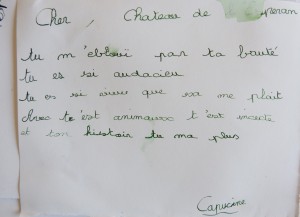 Cher, Chateau de
tu m'eblouï par ta bauté
tu es si audacieu
tu es si que sa me plait
Avec te animauxe t'est insecte
et ton histoir tu ma plus
Capucine